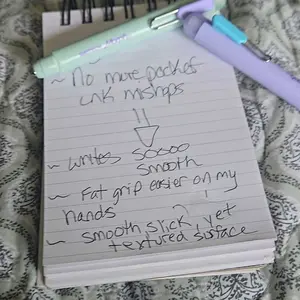 ~ No more pocket
ink mishaps
~ writes soooo
smooth
~ Fat grip easier on my
hands
~ smooth slick, yet
textured surface